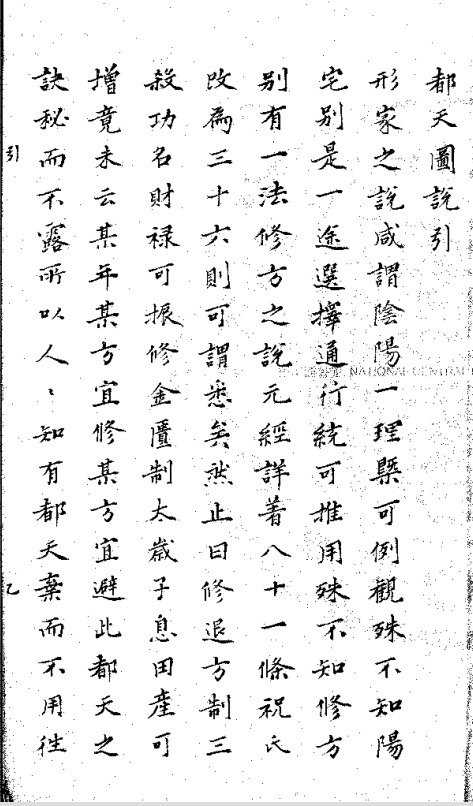 都天圖說引
形家之說咸謂陰陽一理槩可例觀殊不知陽
宅別是一途選擇通行統可推用殊不知修方
別有一法修方之說元經詳著八十一條祝氏
改為三十六則可謂悉矣然止曰修退方制三
殺功名財祿可振修金匱制太歲子息田產可
增竟未云某年某方宜修某方宜避此都天之
訣秘而不露所以人〻知有都天棄而不用往
引
乙
NATIONAL CENTRAL